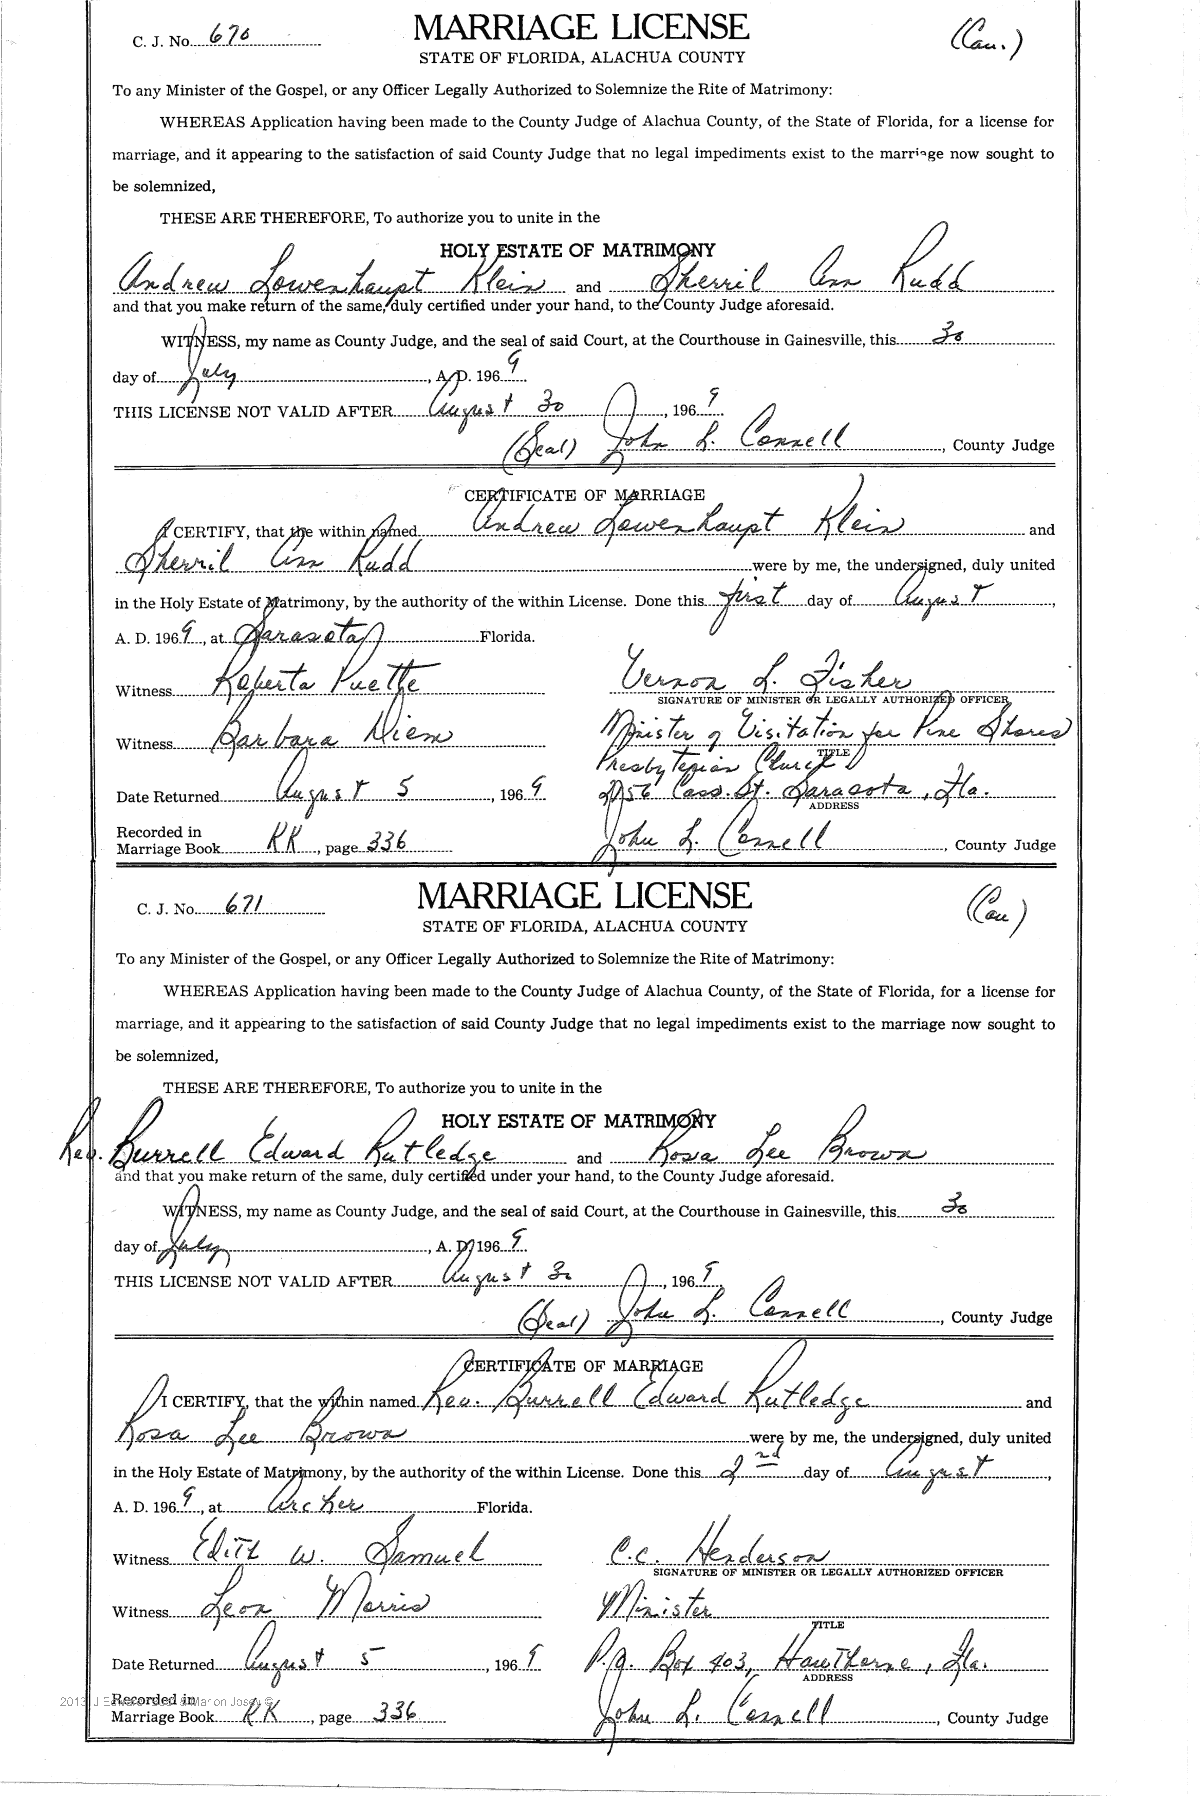 C. J. No. 670 MARRIAGE LICENSE (Cau.)
STATE OF FLORIDA, ALACHUA COUNTY
To any Minister of the Gospel, or any Officer Legally Authorized to Solemnize the Rite of Matrimony:
WHEREAS Application having been made to the County Judge of Alachua County, of the State of Florida, for a license for
marriage, and it appearing to the satisfaction of said County Judge that no legal impediments exist to the marriage now sought to
be solemnized,
THESE ARE THEREFORE, To authorize you to unite in the
HOLY ESTATE OF MATRIMONY
Andrew Lowenhaupt Klein and Sherril Ann Rudd
and that you make return of the same, duly certified under your hand, to the County Judge aforesaid.
WITNESS, my name as County Judge, and the seal of said Court, at the Courthouse in Gainesville, this 30
day of July, A. D. 1969.
THIS LICENSE NOT VALID AFTER August 30, 1969.
(Seal) John L. Connell, County Judge
CERTIFICATE OF MARRIAGE
I CERTIFY, that the within named Andrew Lowenhaupt Klein and
Sherril Ann Rudd were by me, the undersigned, duly united
in the Holy Estate of Matrimony, by the authority of the within License. Done this first day of August,
A. D. 1969, at Sarasota Florida.
Witness Roberta Puette Vernon L. Fisher
SIGNATURE OF MINISTER OR LEGALLY AUTHORIZED OFFICER
Witness Barbara Diem Minister of Visitation for Pine Shores
TITLE
Presbyterian Church
Date Returned August 5, 1969 Cass. St. Sarasota, Fla.
ADDRESS
Recorded in
Marriage Book KK, page 336 John L. Connell, County Judge
C. J. No. 671 MARRIAGE LICENSE (Cau)
STATE OF FLORIDA, ALACHUA COUNTY
To any Minister of the Gospel, or any Officer Legally Authorized to Solemnize the Rite of Matrimony:
WHEREAS Application having been made to the County Judge of Alachua County, of the State of Florida, for a license for
marriage, and it appearing to the satisfaction of said County Judge that no legal impediments exist to the marriage now sought to
be solemnized,
THESE ARE THEREFORE, To authorize you to unite in the
HOLY ESTATE OF MATRIMONY
Rev. Burrell Edward Rutledge and Rosa Lee Brown
and that you make return of the same, duly certified under your hand, to the County Judge aforesaid.
WITNESS, my name as County Judge, and the seal of said Court, at the Courthouse in Gainesville, this 30
day of July, A. D. 1969.
THIS LICENSE NOT VALID AFTER August 30, 1969.
(Seal) John L. Connell, County Judge
CERTIFICATE OF MARRIAGE
I CERTIFY, that the within named Rev. Burrell Edward Rutledge and
Rosa Lee Brown were by me, the undersigned, duly united
in the Holy Estate of Matrimony, by the authority of the within License. Done this 2nd day of August,
A. D. 1969, at Archer Florida.
Witness Edith W. Samuel C.C. Henderson
SIGNATURE OF MINISTER OR LEGALLY AUTHORIZED OFFICER
Witness Leon Morris Minister
TITLE
Date Returned August 5, 1969 P.O. Box 403, Hawthorne, Fla.
ADDRESS
Recorded in
Marriage Book KK, page 336 John L. Connell, County Judge